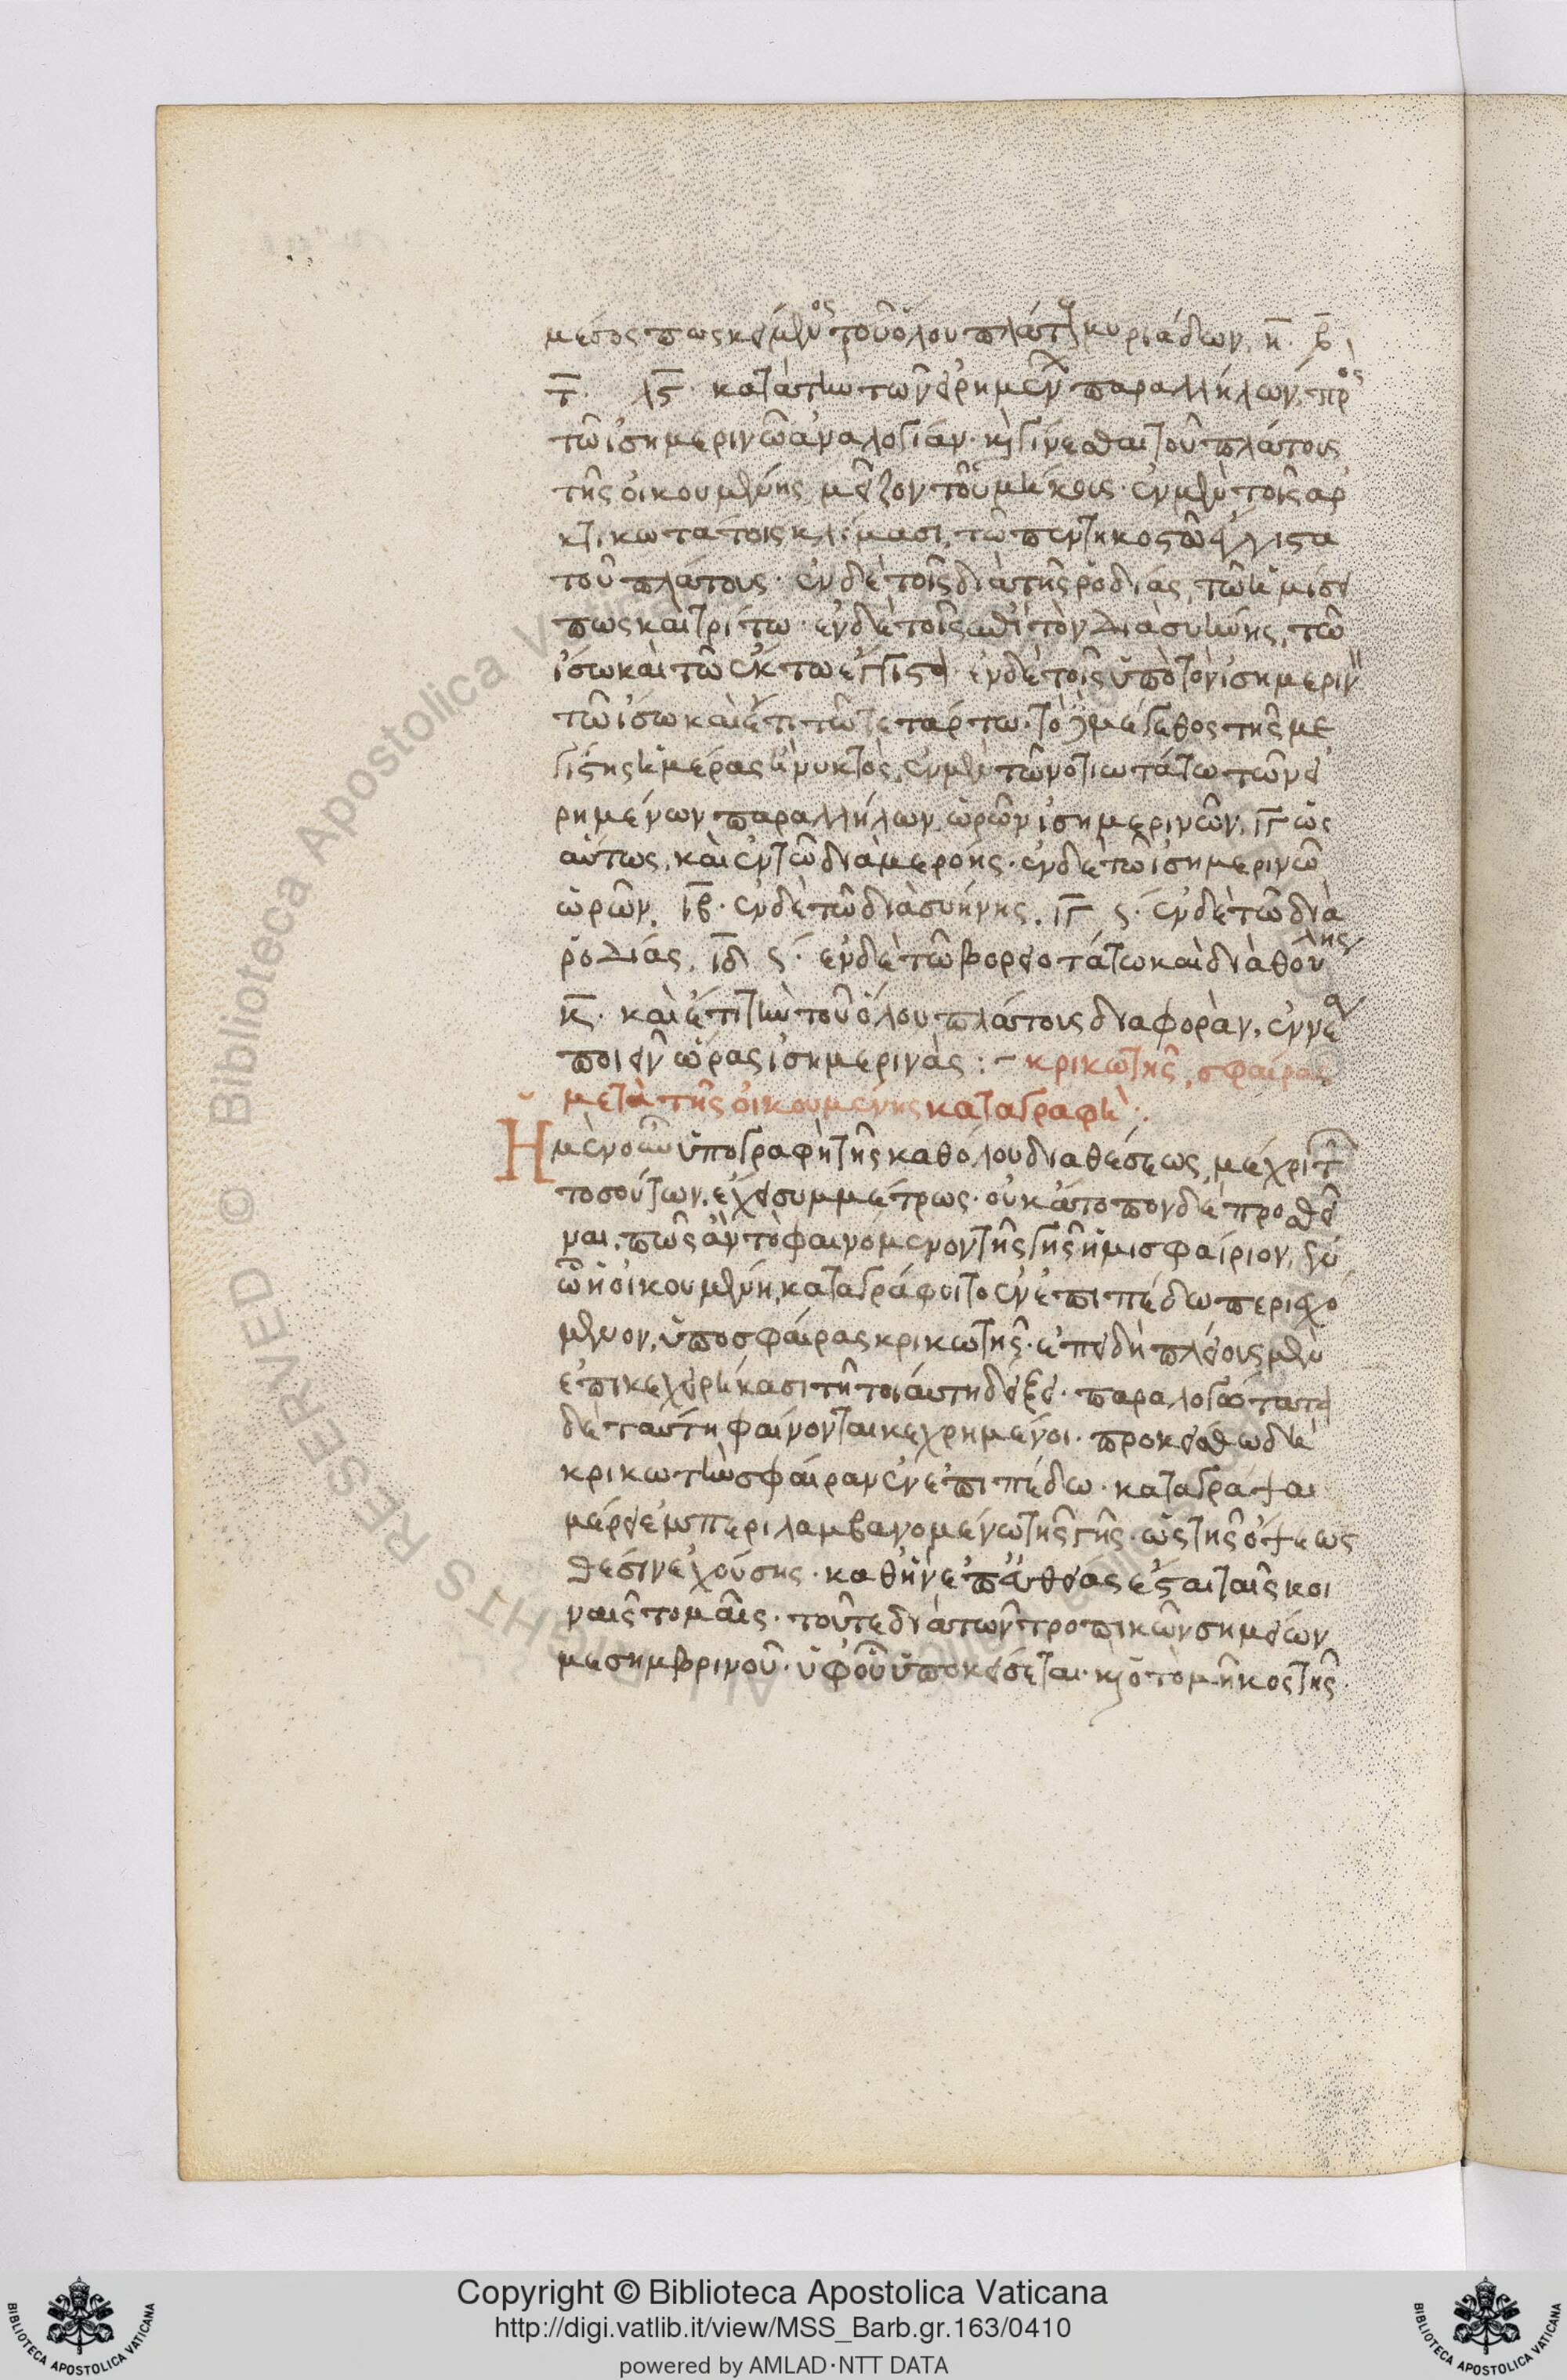 μέσος πως κείμενος τοῦ ὅλου πλάτους μυριάδων, η̅. β̅,
τ̅. λ̅ς̅. κατὰ τὴν τῶν εἰρημένων παραλλήλων, πρὸς
τῶ ἰσημερινῶ ἀναλογίαν. καὶ γίνεσθαι τοῦ πλάτους
τῆς οἰκουμένης μεῖζον τοῦ μήκους. ἐν μὲν τοῖς ἀρ
κτικωτάτοις κλίμασι, τῶ πεντηκοστῶ ἔγγιστα
τοῦ πλάτους. ἐν δὲ τοῖς διὰ τῆς ῥοδίας, τῶ ἡμίσει
πως καὶ τρίτω. ἐν δὲ τοῖς ἐπὶ τὸν διὰ συήνης, τῶ
ἴσω καὶ τῶ ἕκτω ἔγγιστα. ἐν δὲ τοῖς ὑπὸ τὸν ἰσημερινὸν
τῶ ἴσω καὶ ἔτι τῶ τετάρτω. τὸ δὲ μέγεθος τῆς με
γίστης ἡμέρας ἢ νυκτὸς, ἐν μὲν τῶ νοτιωτάτω τῶν εἰ
ρημένων παραλλήλων, ὡρῶν ἰσημερινῶν, ι̅γ̅ ὡς
αύτως, καὶ ἐν τῶ διὰ μερόης. ἐν δὲ τῶ ἰσημερινῶ
ὡρῶν, ι̅β̅. ἐν δὲ τῶ διὰ συήνης, ι̅γ̅ ϛ. ἐν δὲ τῶ διὰ
ῥοδίας, ι̅δ̅ ϛ. ἐν δὲ τῶ βορειοτάτω καὶ διὰ θούλης
κ̅. καὶ ἔτι τὴν τοῦ ὅλου πλάτους διαφορὰν, ἐννέα
ποιεῖν ὥρας ἰσημερινὰς :- κρικωτῆς, σφαίρας
μετὰ τῆς οἰκουμένης καταγραφὴ :.
Ἡ μὲν οὖν ὑπογραφὴ τῆς καθόλου διαθέσεως, μέχρι τῶν
τοσούτων, ἔχει συμμέτρως. οὐκ ἄτοπον δὲ προσθεῖ
ναι, πῶς ἂν τὸ φαινόμενον τῆς γῆς ἡμισφαίριον, ἐν
ὧ ἡ οἰκουμένη, καταγράφοιτο ἐν ἐπιπέδω περιεχό
μενον, ὑπὸ σφαίρας κρικωτῆς. ἐπειδὴ πλείους μὲν
ἐπικεχειρήκασι τῆ τοιαύτη δείξει. παραλογώτατα
δὲ ταύτη φαίνονται κεχρημένοι. προκείσθω δὲ
κρικωτὴν σφαῖραν ἐν ἐπιπέδω. καταγράψαι
μέρει ἐμπεριλαμβανομένω τῆς γῆς. ὡς τῆς ὄψεως
θέσιν ἐχούσης. καθ' ἣν ἐπ' εὐθείας ἔσται ταῖς κοι
ναῖς τομαῖς. τοῦ τε διὰ τῶν τροπικῶν σημείων
μεσημβρινοῦ. ὑφ' οὗ ὑποκείσεται. καὶ ὁ τὸ μῆκος τῆς